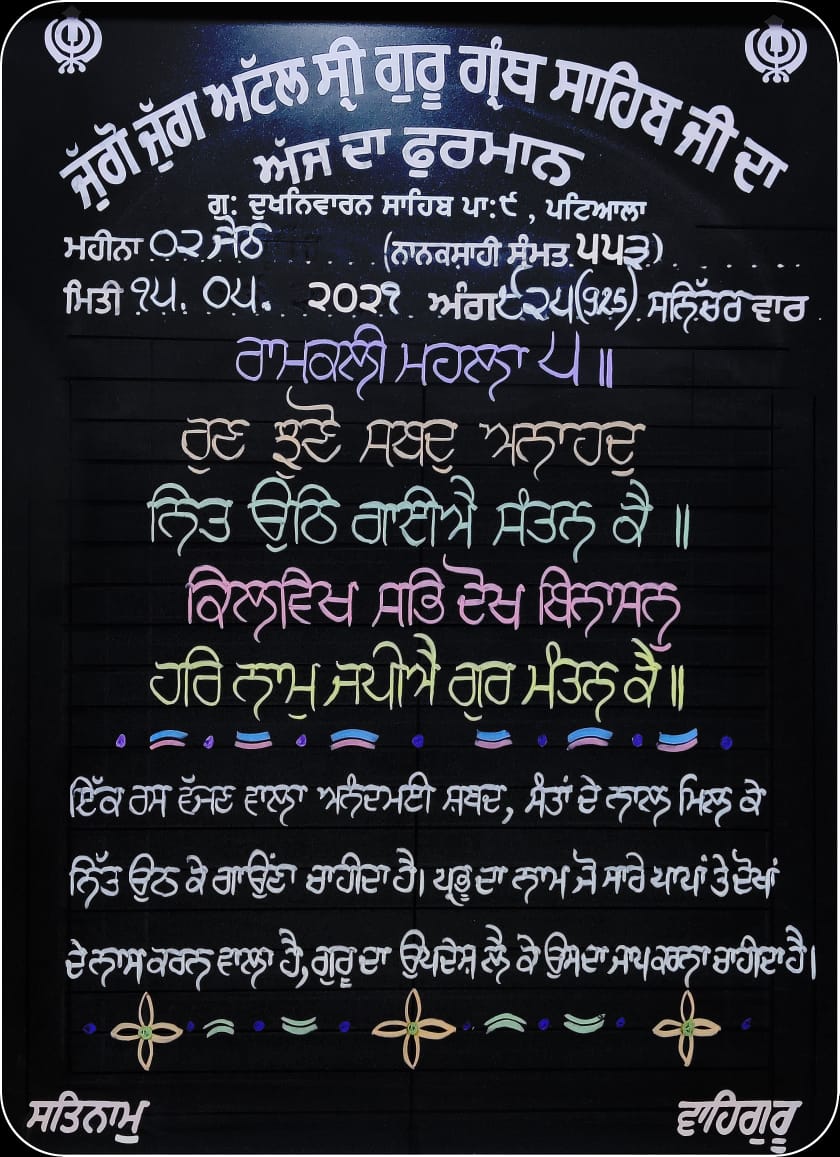 ਜੁੱਗੋ ਜੁੱਗ ਅਟੱਲ ਸ੍ਰੀ ਗੁਰੂ ਗ੍ਰੰਥ ਸਾਹਿਬ ਜੀ ਦਾ
ਅੱਜ ਦਾ ਫੁਰਮਾਨ
ਗੁ: ਦੁਖਨਿਵਾਰਨ ਸਾਹਿਬ ਪਾ:੯ , ਪਟਿਆਲਾ
ਮਹੀਨਾ ੦੨ ਜੇਠ (ਨਾਨਕਸ਼ਾਹੀ ਸੰਮਤ ੫੫੩)
ਮਿਤੀ ੧੫. ੦੫. ੨੦੨੧ ਅੰਗ ੯੨੫(925) ਸਨਿੱਚਰ ਵਾਰ
ਰਾਮਕਲੀ ਮਹਲਾ ੫ ॥
ਰੁਣ ਝੁਣੋ ਸਬਦੁ ਅਨਾਹਦੁ
ਨਿਤ ਉਠਿ ਗਾਈਐ ਸੰਤਨ ਕੈ ॥
ਕਿਲਵਿਖ ਸਭਿ ਦੋਖ ਬਿਨਾਸਨੁ
ਹਰਿ ਨਾਮੁ ਜਪੀਐ ਗੁਰ ਮੰਤਨ ਕੈ ॥
ਇੱਕ ਰਸ ਵੱਜਣ ਵਾਲਾ ਅਨੰਦਮਈ ਸ਼ਬਦ, ਸੰਤਾਂ ਦੇ ਨਾਲ ਮਿਲ ਕੇ
ਨਿੱਤ ਉਠ ਕੇ ਗਾਉਂਣਾ ਚਾਹੀਦਾ ਹੈ। ਪ੍ਰਭੂ ਦਾ ਨਾਮ ਜੋ ਸਾਰੇ ਪਾਪਾਂ ਤੇ ਦੋਖਾਂ
ਦੇ ਨਾਸ ਕਰਨ ਵਾਲਾ ਹੈ, ਗੁਰੂ ਦਾ ਉਪਦੇਸ਼ ਲੈ ਕੇ ਉਸਦਾ ਜਾਪ ਕਰਨਾ ਚਾਹੀਦਾ ਹੈ।
ਸਤਿਨਾਮੁ ਵਾਹਿਗੁਰੂ